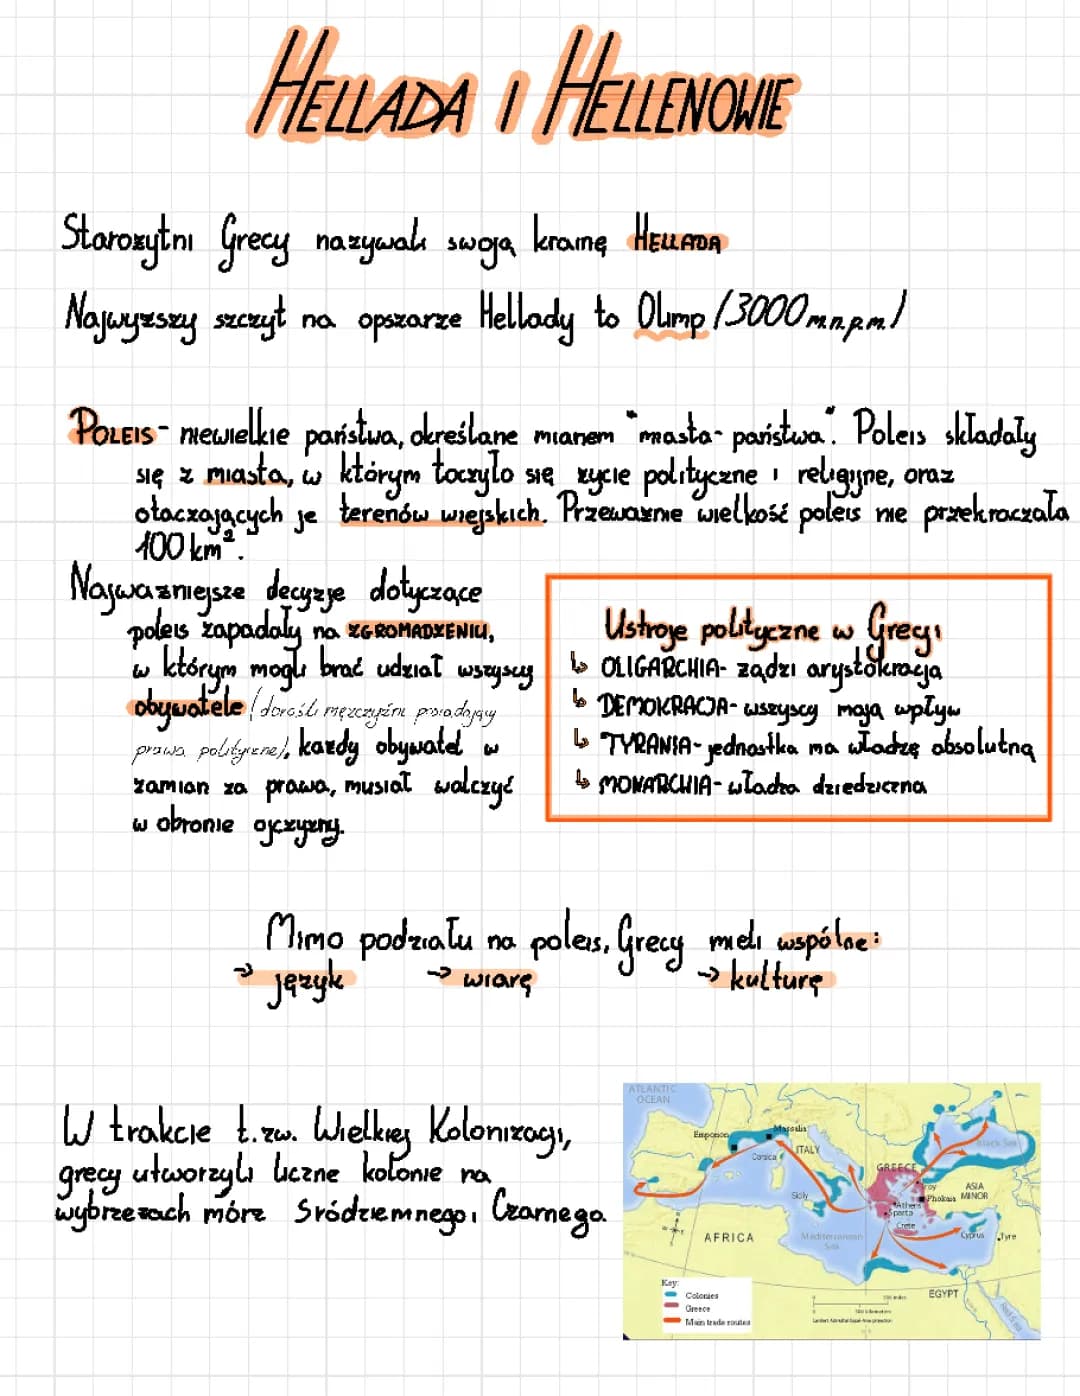 HELLADA I HELLENOWIE
Starożytni Grecy nazywali swoją krainę HELLADĄ
Najwyższy szczyt na opszarze Hellady to Olimp /3000 m.n.p.m./
POLEIS - niewielkie państwa, określane mianem "miasta-państwa". Poleis składały
się z miasta, w którym toczyło się życie polityczne i religijne, oraz
otaczających je terenów wiejskich. Przeważnie wielkość poleis nie przekraczała
100 km².
Najważniejsze decyzje dotyczące
poleis zapadały na ZGROMADZENIU,
w którym mogli brać udział wszyscy
obywatele (dorośli mężczyźni posiadający
prawa polityczne), każdy obywatel w
zamian za prawa, musiał walczyć
w obronie ojczyzny.
Ustroje polityczne w Grecji
↳ OLIGARCHIA- żądzi arystokracja
↳ DEMOKRACJA- wszyscy mają wpływ
↳ TYRANIA- jednostka ma władzę absolutną
↳ MONARCHIA- władza dziedziczna
Mimo podziału na poleis, Grecy mieli wspólne:
→ język → wiarę → kulturę
W trakcie t.zw. Wielkiej Kolonizacji,
grecy utworzyli liczne kolonie na
wybrzeżach mórz Śródziemnego i Czarnego.
ATLANTIC
OCEAN
Emporion
Massalia
Corsica
ITALY
Black Sea
GREECE
Troy
ASIA
MINOR
Phokaia
Sicily
Athens
Sparta
Crete
AFRICA
Mediterranean
Sea
Cyprus
Tyre
EGYPT
Red Sea
Key:
Colonies
Greece
Main trade routes